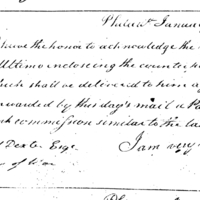 Philad.ª January
have the honor to acknowledge the
Ultimo enclosing the counter
such shall be delivered to him a
warded by this day's mail a Pa
commission similar to the la
I am very
Dexter Esqr.
of War